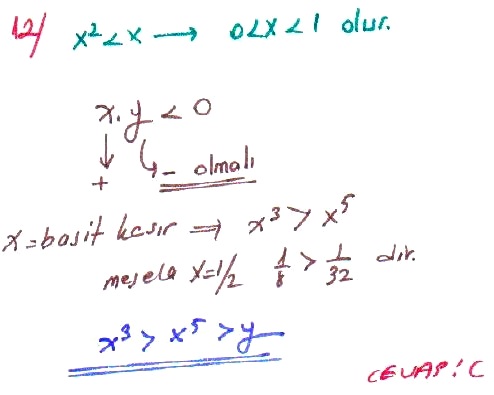 12/ x² < x → 0<x<1 olur.
x.y < 0
↓ ↳ - olmalı
+
x=basit kesir ⇒ x³ > x⁵
mesela x=1/2 1/8 > 1/32 dir.
x³ > x⁵ > y
CEVAP: C